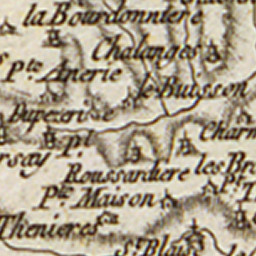 la Bourdonniere
Chalanges
pte Anerie
le Buisson
Charm
rsay
Roussardiere
les Br
Pte Maison
Thenieres
St Blais